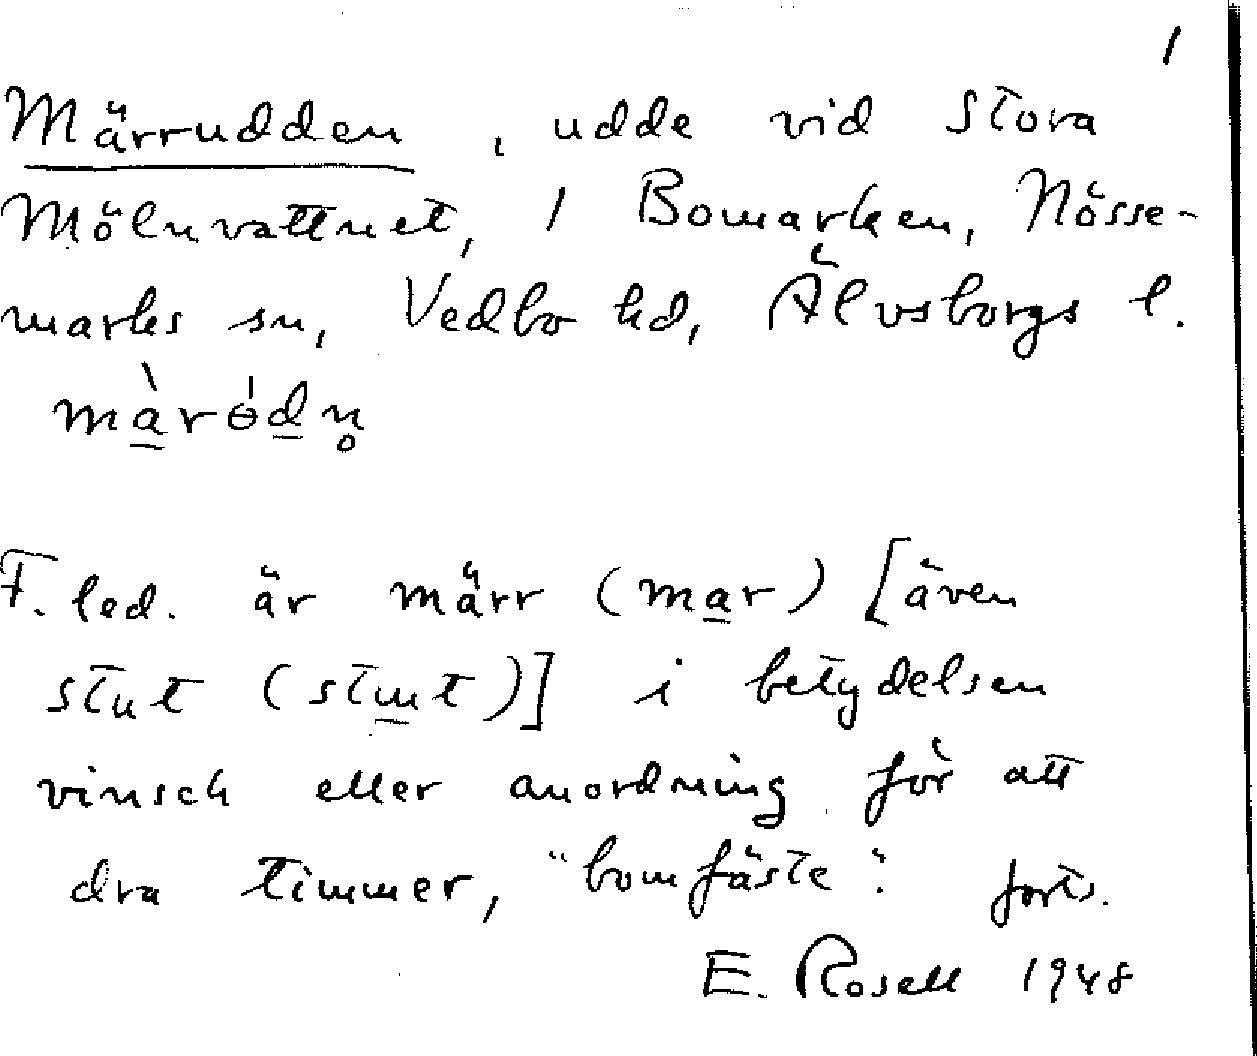 1
Märrudden, udde vid Stora
Mölnvattnet, 1 Bomarken, Nösse-
marks sn, Vedbo hd, Älvsborgs l.
màrɵ́dn̥
F. led. är märr (mar) [även
stut (stɯt)] i betydelsen
vinsch eller anordning för att
dra timmer, "bomfäste". forts.
E. Rosell 1948